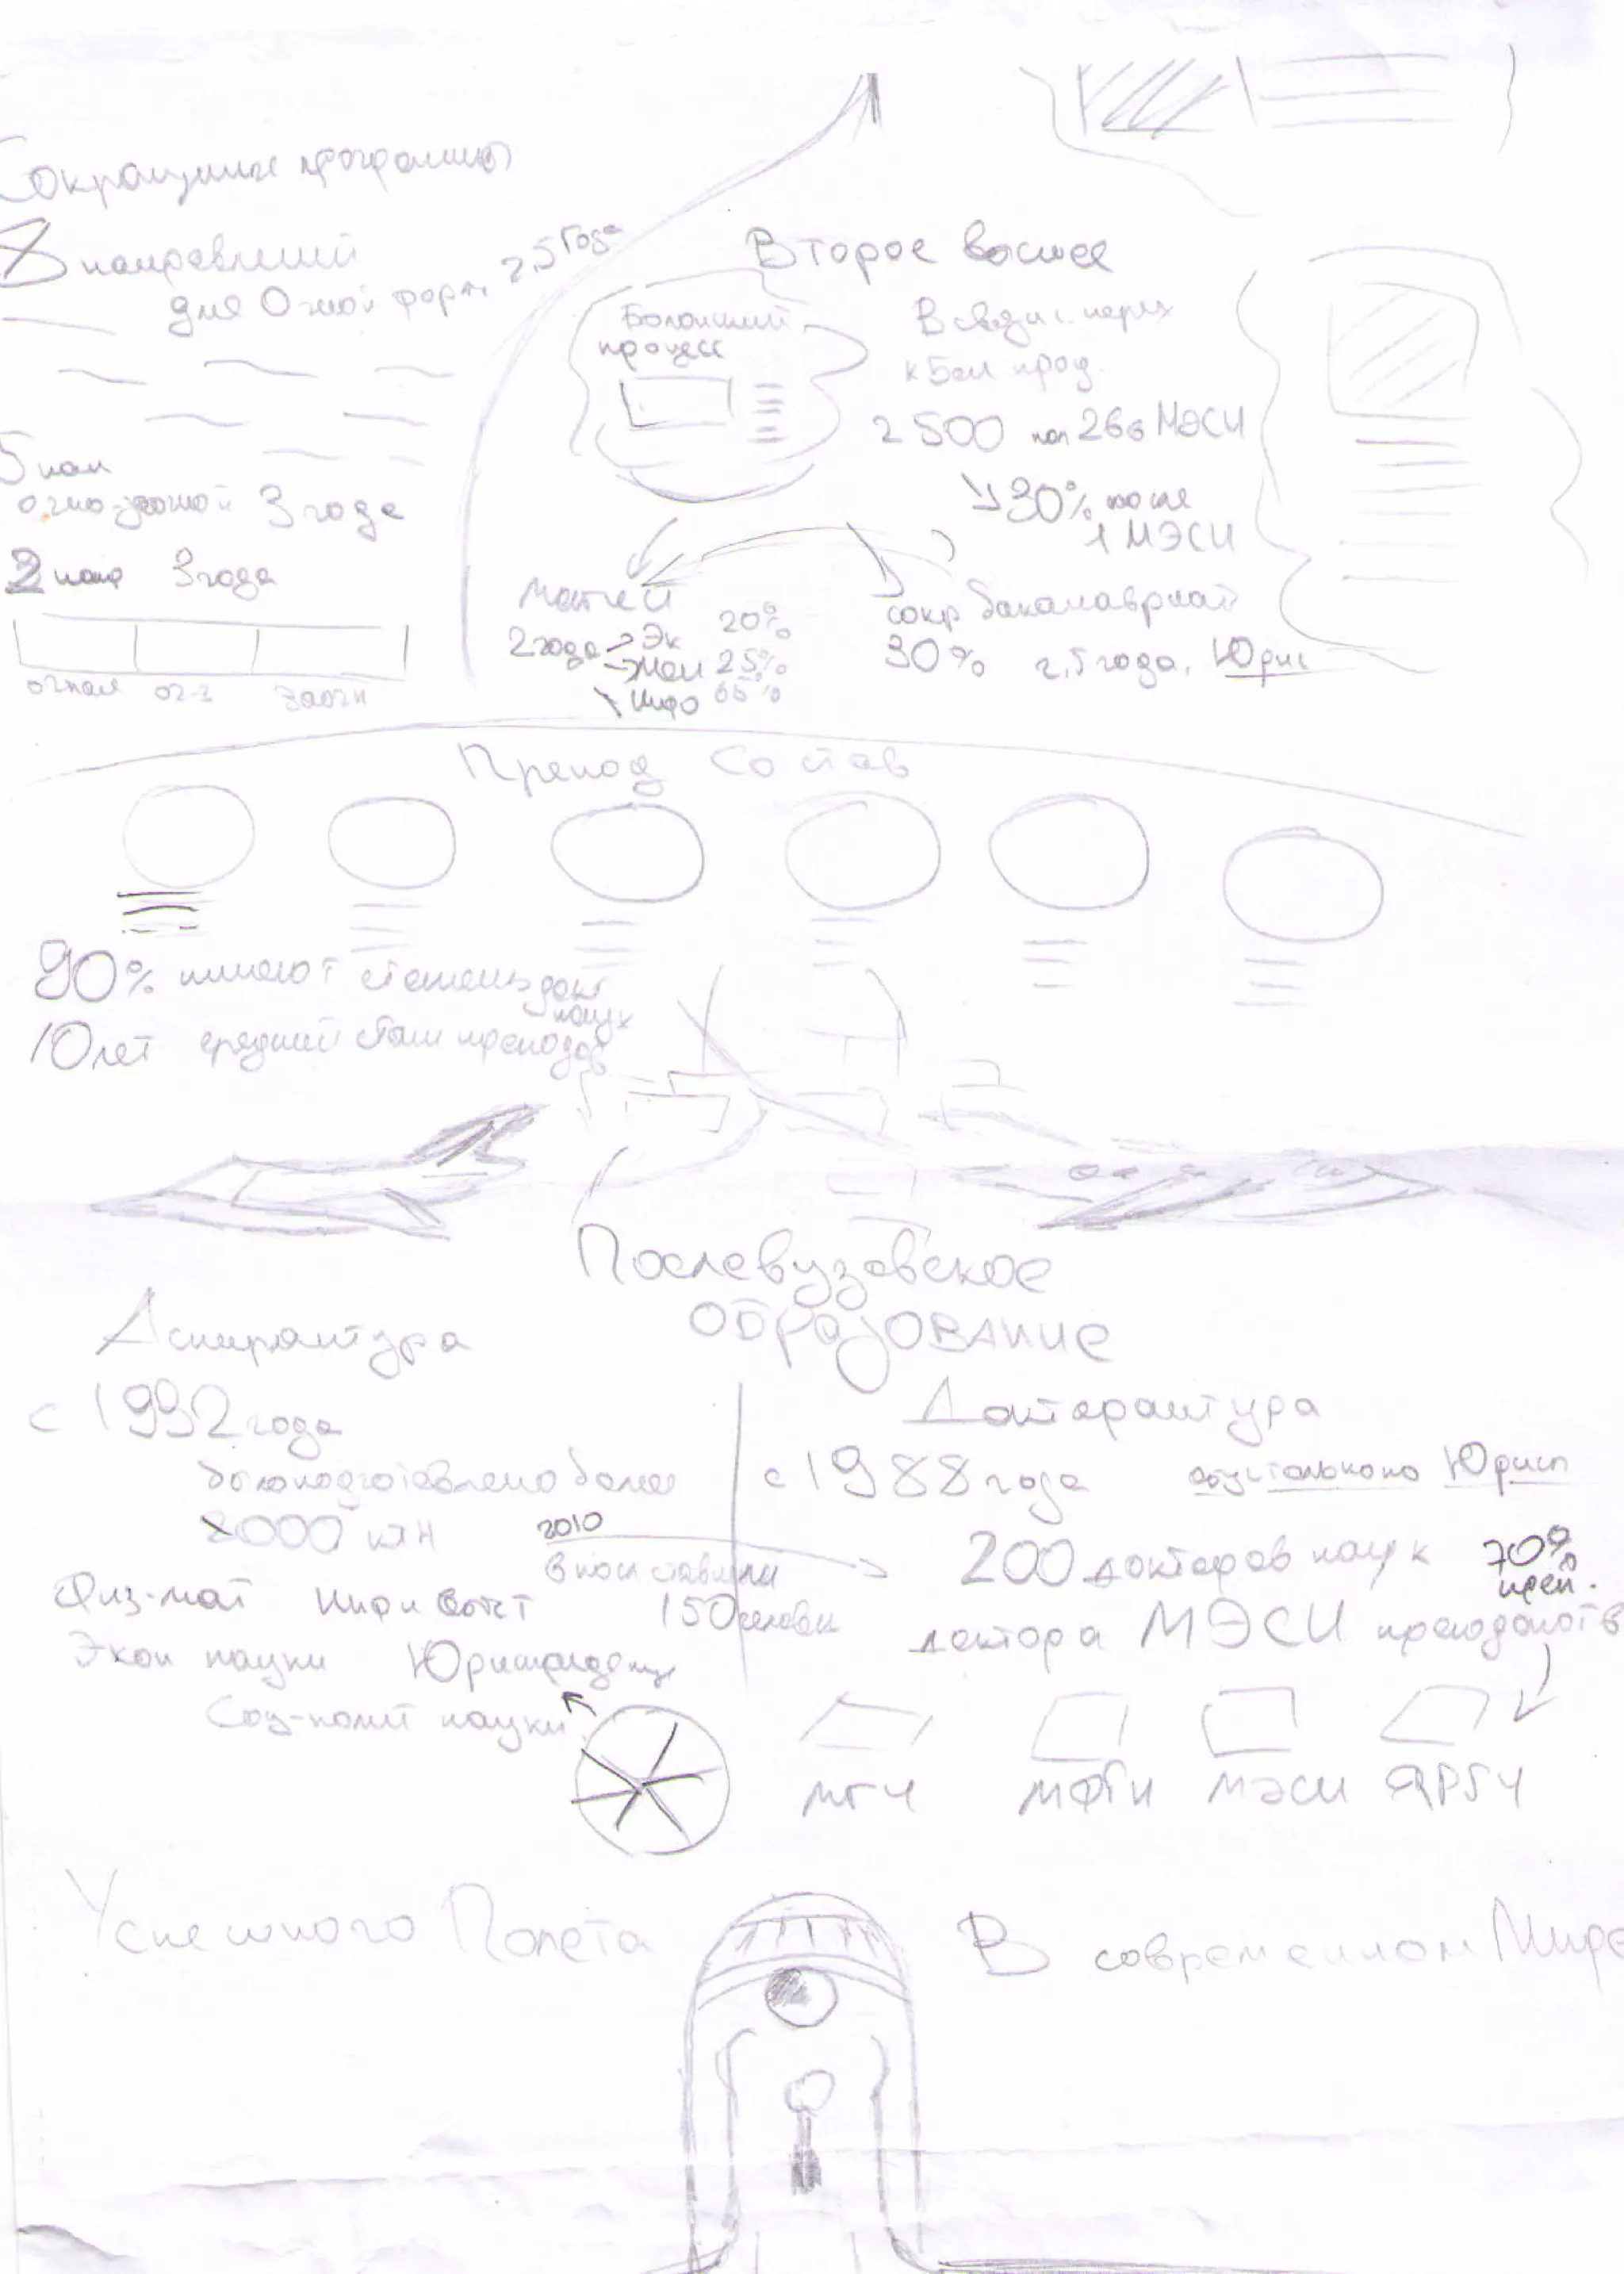 Сокращенные программы
8 направлений
для Очной форм 2,5 года
5 нап
очно-заочной 3 года
2 напр 3 года
очная оч-з заочн
Второе высшее
Болонский
процесс
В связи с перех
к Бол проц.
2 500 чел 266 МЭСИ
30% после
1 МЭСИ
2 года Эк 20%
Мен 25%
Инфо 65%
сокр бакалавриат
30% 2,5 года, Юрис
Препод Состав
90% имеют степень докт
наук
10 лет средний стаж преподов
Послевузовское
ОБРАЗОВАНИЕ
Аспирантура
с 1992 года
было подготовлено более
2000 ктн
2010
150 человек
Физ-мат Инф и Вотст
Экон науки Юриспруденц
Соц-полит науки
Докторантура
с 1988 года отсутсолько по Юрисп
200 докторов наук 70%
преп.
доктора МЭСИ преподают в
МГУ МФТИ МЭСИ ЯРГУ
Успешного Полета В современном Мире